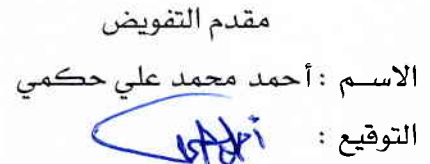 مقدم التفويض
الاسم : أحمد محمد علي حكمي
التوقيع :